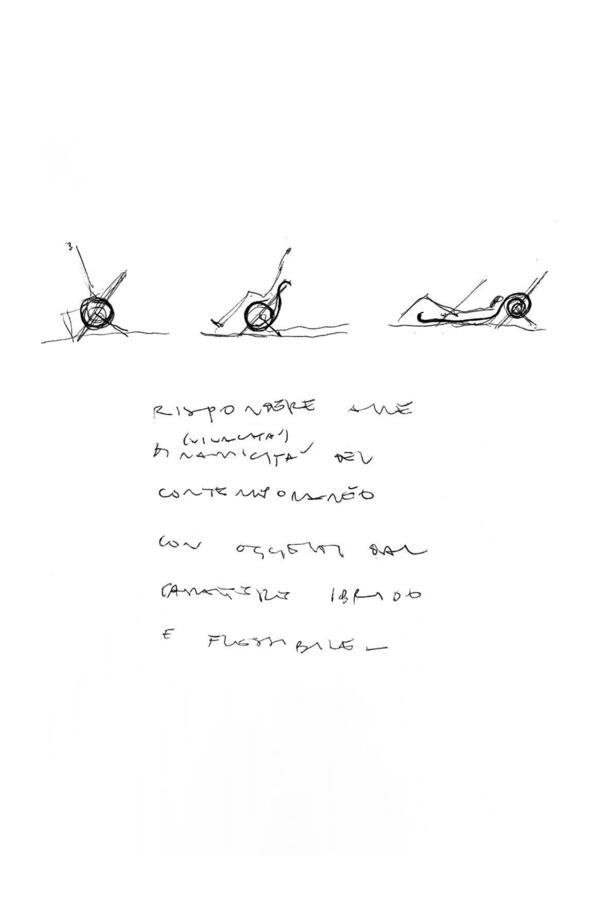 RISPONDERE ALLE
(VIVACITÀ)
DINAMICITÀ DEL
CONTEMPORANEO
CON OGGETTI DAL
CARATTERE IBRIDO
E FLESSIBILE